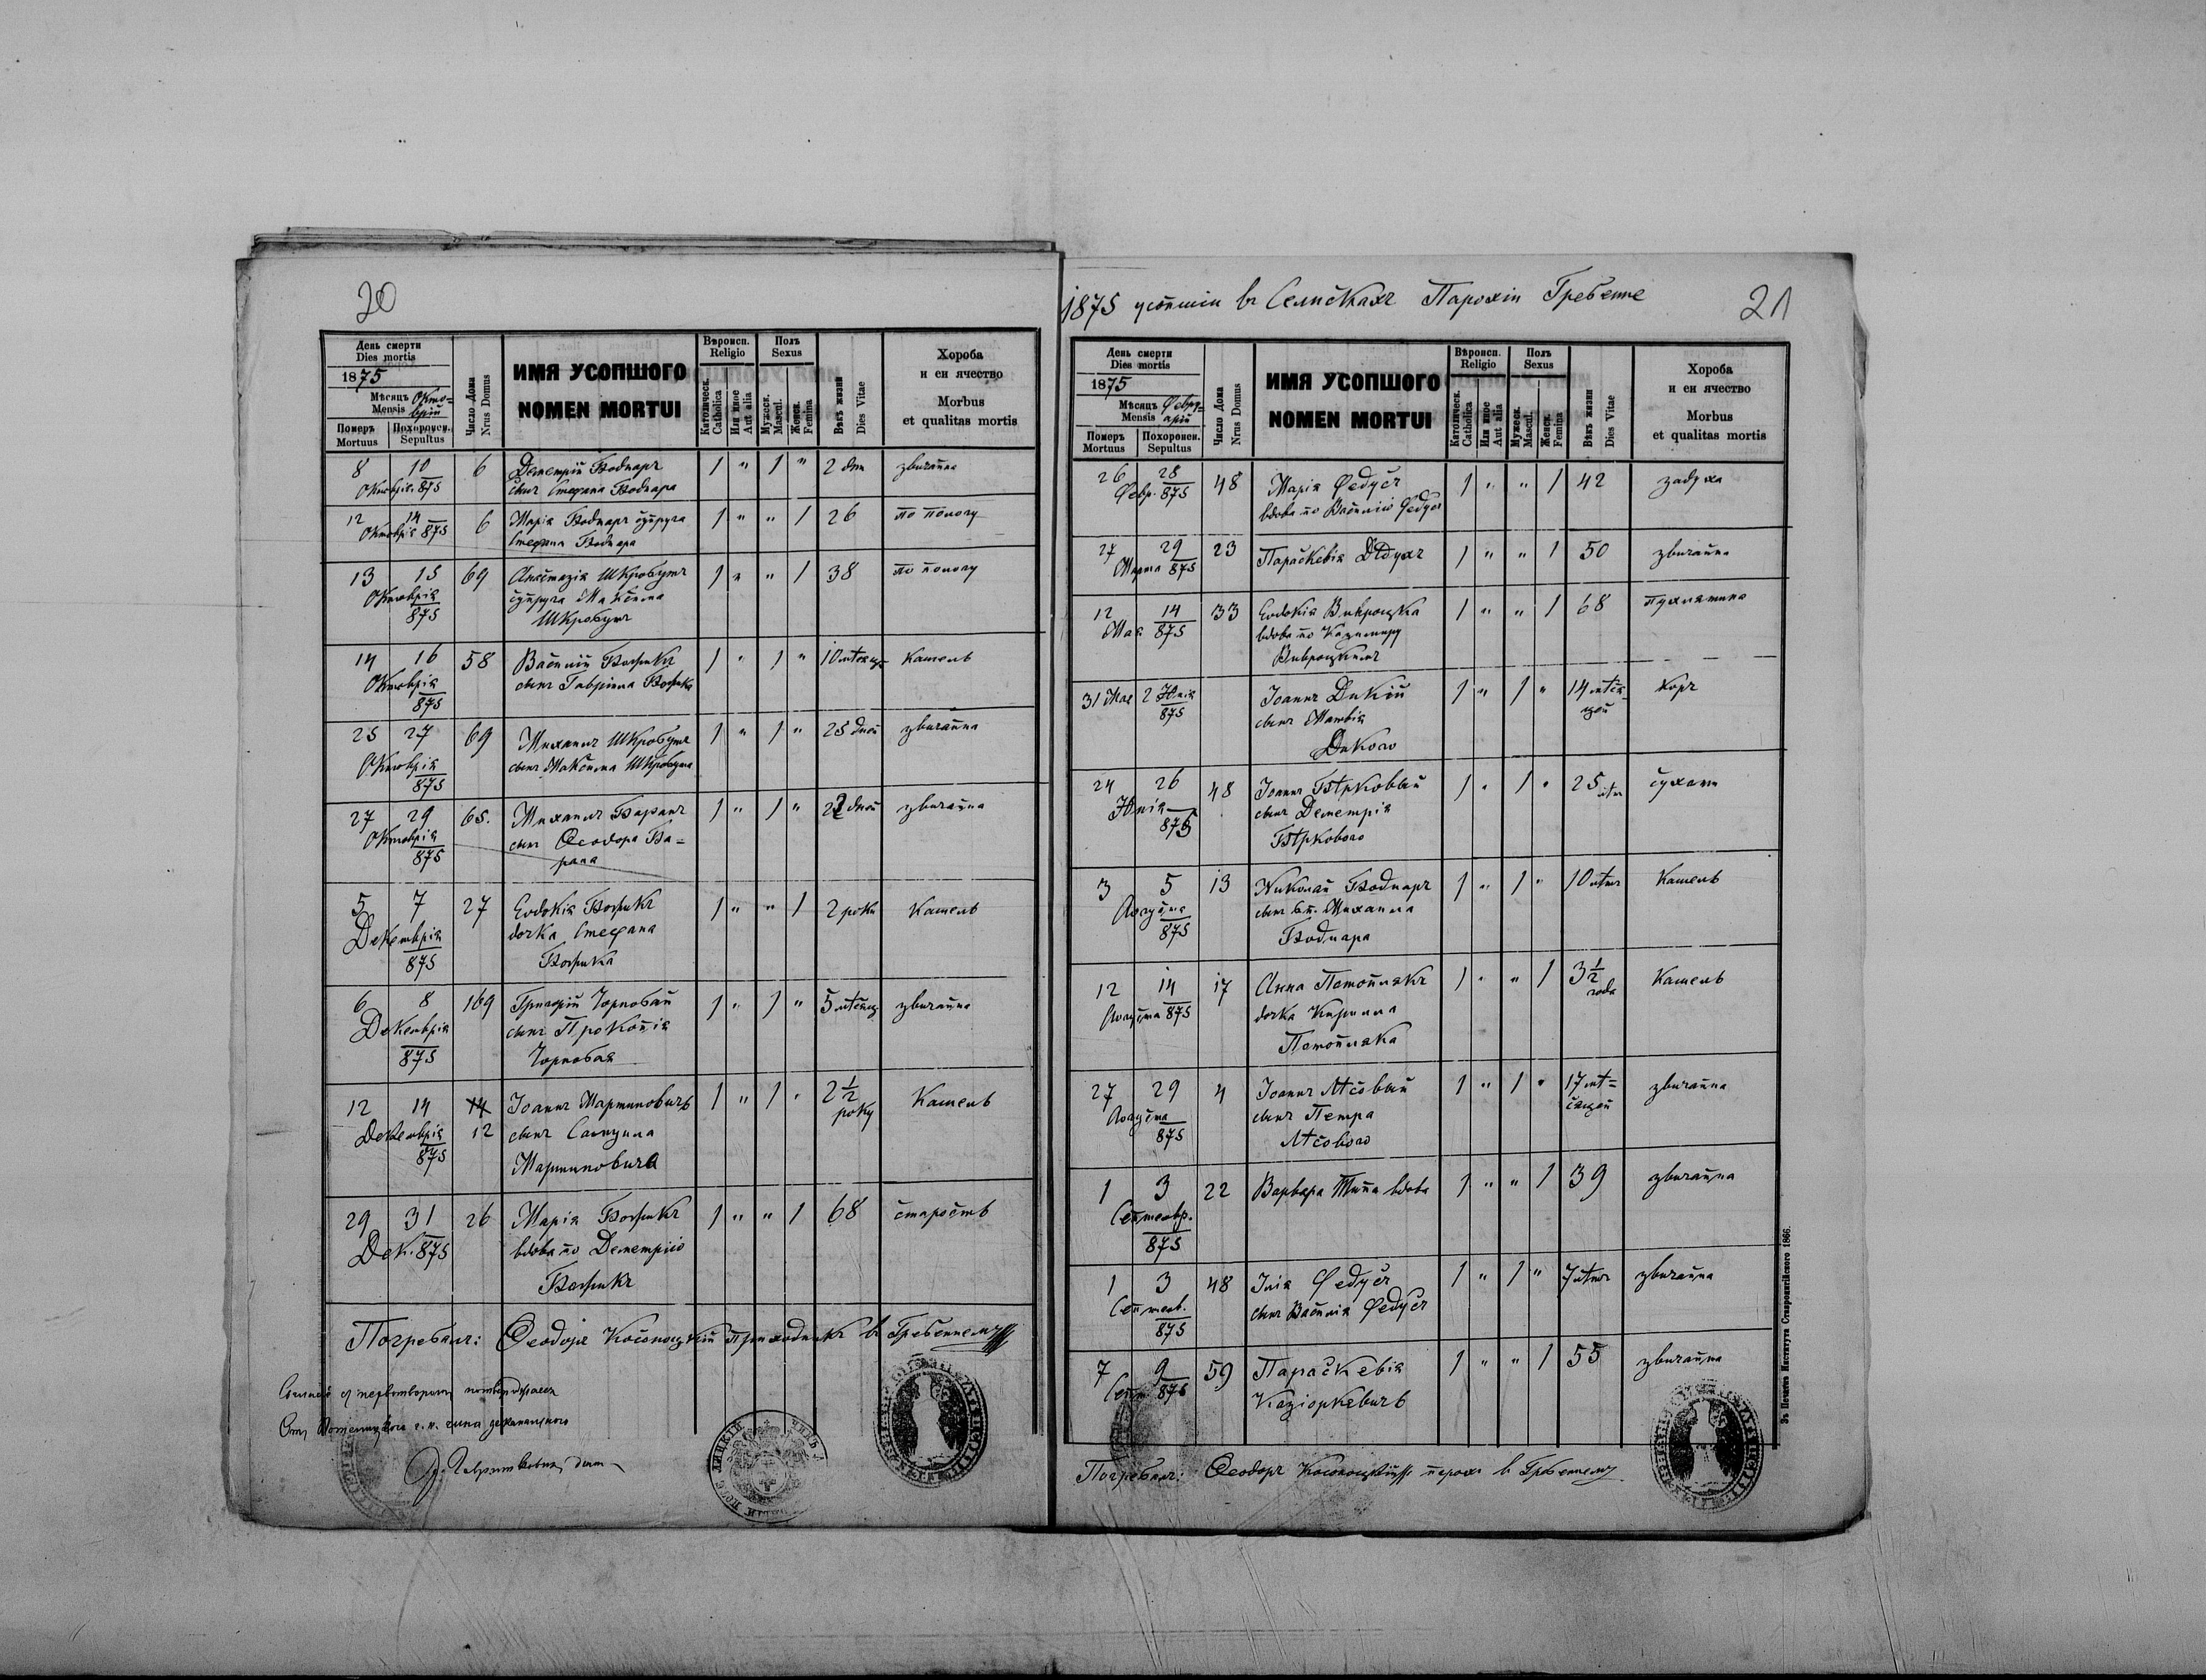 20
День смерти
Dies mortis
1875
Мѣсяцъ Окто=
Mensis врій
Померъ Похоронен.
Mortuus Sepultus
Число Дома
Nrus Domus
ИМЯ УСОПШОГО
NOMEN MORTUI
Вѣроисп.
Religio
Католическ.
Catholica
Или иное
Aut alia
Полъ
Sexus
Мужеск.
Mascul.
Женск.
Femina
Вѣкъ жизни
Dies Vitae
Хороба
и еи ячество
Morbus
et qualitas mortis
8 10 6 Деметрій Боднаръ 1 " 1 " 2 дни звичайна
Октоврія 875 сынъ Стефана Боднара
12 14 6 Марія Боднаръ супруга 1 " " 1 26 по пологу
Октоврія 875 Стефана Боднара
13 15 69 Анастазія Шкробутъ 1 " " 1 38 по пологу
Октоврія супруга Максима
875 Шкробутъ
14 16 58 Василій 1 " 1 " 10 мѣсяц. Кашель
Октоврія сынъ Гавріила
875
25 27 69 Михаилъ Шкробутъ 1 " 1 " 25 дней звичайна
Октоврія сынъ Максима Шкробута
875
27 29 65. Михаилъ Баранъ 1 " 1 " 22 дней звичайна
Октоврія сынъ Ѳеодора Ба=
875 рана
5 7 27 Евдокія 1 " " 1 2 роки Кашель
Декемврія дочка Стефана
875
6 8 169 Григорій Чорнобай 1 " 1 " 5 мѣсяц. звичайна
Декемврія сынъ Прокопія
875 Чорнобая
12 14 14 Іоаннъ Мартиновичъ 1 " 1 " 2 1/2 Кашель
Декемврія 12 сынъ Самуила року
875 Мартиновича
29 31 26 Марія 1 " " 1 68 старость
Дек. 875 вдова по Деметрію
Погребалъ: Ѳеодоръ Косоноцкій Приходникъ в Гребенном
1875 усопшіи въ Селискахъ Парохіи Гребенне
21
День смерти
Dies mortis
1875
Мѣсяцъ Февру=
Mensis арій
Померъ Похоронен.
Mortuus Sepultus
Число Дома
Nrus Domus
ИМЯ УСОПШОГО
NOMEN MORTUI
Вѣроисп.
Religio
Католическ.
Catholica
Или иное
Aut alia
Полъ
Sexus
Мужеск.
Mascul.
Женск.
Femina
Вѣкъ жизни
Dies Vitae
Хороба
и еи ячество
Morbus
et qualitas mortis
26 28 48 Марія Федусъ 1 " " 1 42 задуха
Февр. 875 вдова по Василію Федусъ
27 29 23 Параскевія Дѣдухъ 1 " " 1 50 звичайна
Марта 875
12 14 33 Евдокія Вивроцка 1 " " 1 68 пухлятина
Мая 875 вдова по Казимиру
Вивроцкимъ
31 Мая 2 Юнія Іоаннъ Дикій 1 " 1 " 14 мѣся= коръ
875 сынъ Матвія цей
Дикого
24 26 48 Іоаннъ Бѣрковый 1 " 1 " 25 лѣт сухоти
Юнія сынъ Деметрія
875 Бѣркового
3 5 13 Николай Боднаръ 1 " 1 " 10 лѣтъ Кашель
Августа сынъ бл. Михаила
875 Боднара
12 14 17 Анна 1 " " 1 3 1/2 Кашель
Августа 875 дочка Кирилла года
27 29 4 Іоаннъ Лѣсовый 1 " 1 " 17 мѣ= звичайна
Августа сынъ Петра сяцей
875 Лѣсового
1 3 22 Варвара Типа вдова 1 " " 1 39 звичайна
Септемвр.
875
1 3 48 Ілія Федусъ 1 " 1 " 7 лѣтъ звичайна
Септемв. сынъ Василія Федусъ
875
7 9 59 Параскевія 1 " " 1 55 звичайна
Септ. 875 Казіоркевичъ
Погребалъ: Ѳеодоръ Косоноцкій парохъ в Гребенном
Зъ Печатнѣ Института Ставропигійского 1866.